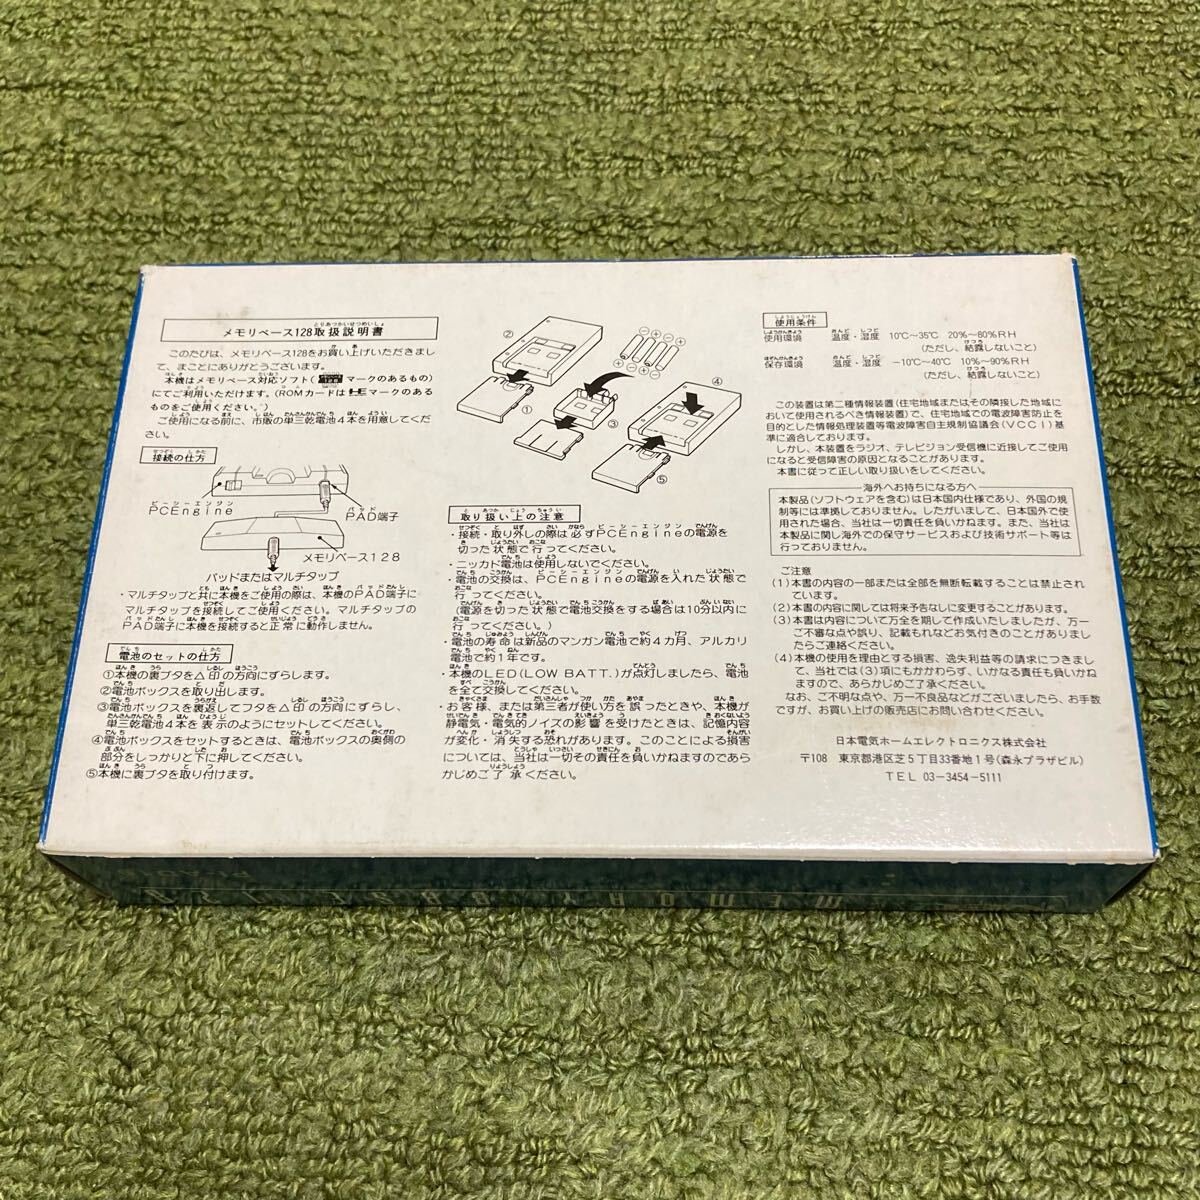 メモリベース128取扱説明書
このたびは、メモリベース128をお買い上げいただきまし
て、まことにありがとうございます。
本機はメモリベース対応ソフト(マークのあるもの)
にてご利用いただけます。(ROMカードはHEマークのある
ものをご使用ください。)
ご使用になる前に、市販の単三乾電池4本を用意してくだ
さい。
接続の仕方
PCEngine
PAD端子
メモリベース128
パッドまたはマルチタップ
・マルチタップと共に本機をご使用の際は、本機のPAD端子に
マルチタップを接続してご使用ください。マルチタップの
PAD端子に本機を接続すると正常に動作しません。
電池のセットの仕方
①本機の裏ブタを△印の方向にずらします。
②電池ボックスを取り出します。
③電池ボックスを裏返してフタを△印の方向にずらし、
単三乾電池4本を表示のようにセットしてください。
④電池ボックスをセットするときは、電池ボックスの奥側の
部分をしっかりと下に押してください。
⑤本機に裏ブタを取り付けます。
②
①
③
④
⑤
取り扱い上の注意
・接続・取り外しの際は必ずPCEngineの電源を
切った状態で行ってください。
・ニッカド電池は使用しないでください。
・電池の交換は、PCEngineの電源を入れた状態で
行ってください。
(電源を切った状態で電池交換をする場合は10分以内に
行ってください。)
・電池の寿命は新品のマンガン電池で約4カ月、アルカリ
電池で約1年です。
・本機のLED(LOW BATT.)が点灯しましたら、電池
を全て交換してください。
・お客様、または第三者が使い方を誤ったときや、本機が
静電気・電気的ノイズの影響を受けたときは、記憶内容
が変化・消失する恐れがあります。このことによる損害
については、当社は一切その責任を負いかねますのであら
かじめご了承ください。
使用条件
使用環境 温度・湿度 10℃～35℃ 20%～80%RH
(ただし、結露しないこと)
保存環境 温度・湿度 －10℃～40℃ 10%～90%RH
(ただし、結露しないこと)
この装置は第二種情報装置(住宅地域またはその隣接した地域に
おいて使用されるべき情報装置)で、住宅地域での電波障害防止を
目的とした情報処理装置等電波障害自主規制協議会(VCCI)基
準に適合しております。
しかし、本装置をラジオ、テレビジョン受信機に近接してご使用
になると受信障害の原因となることがあります。
本書に従って正しい取り扱いをしてください。
海外へお持ちになる方へ
本製品(ソフトウェアを含む)は日本国内仕様であり、外国の規
制等には準拠しておりません。したがいまして、日本国外で使
用された場合、当社は一切責任を負いかねます。また、当社は
本製品に関し海外での保守サービスおよび技術サポート等は
行っておりません。
ご注意
(1)本書の内容の一部または全部を無断転載することは禁止され
ています。
(2)本書の内容に関しては将来予告なしに変更することがあります。
(3)本書は内容について万全を期して作成いたしましたが、万一
ご不審な点や誤り、記載もれなどお気付きのことがありまし
たらご連絡ください。
(4)本機の使用を理由とする損害、逸失利益等の請求につきまし
て、当社では(3)項にもかかわらず、いかなる責任も負いかね
ますので、あらかじめご了承ください。
なお、ご不明な点や、万一不良品などがございましたら、お手数
ですが、お買い上げの販売店にお問い合わせください。
日本電気ホームエレクトロニクス株式会社
〒108 東京都港区芝5丁目33番地1号(森永プラザビル)
TEL 03-3454-5111
MEMORY BASE 128